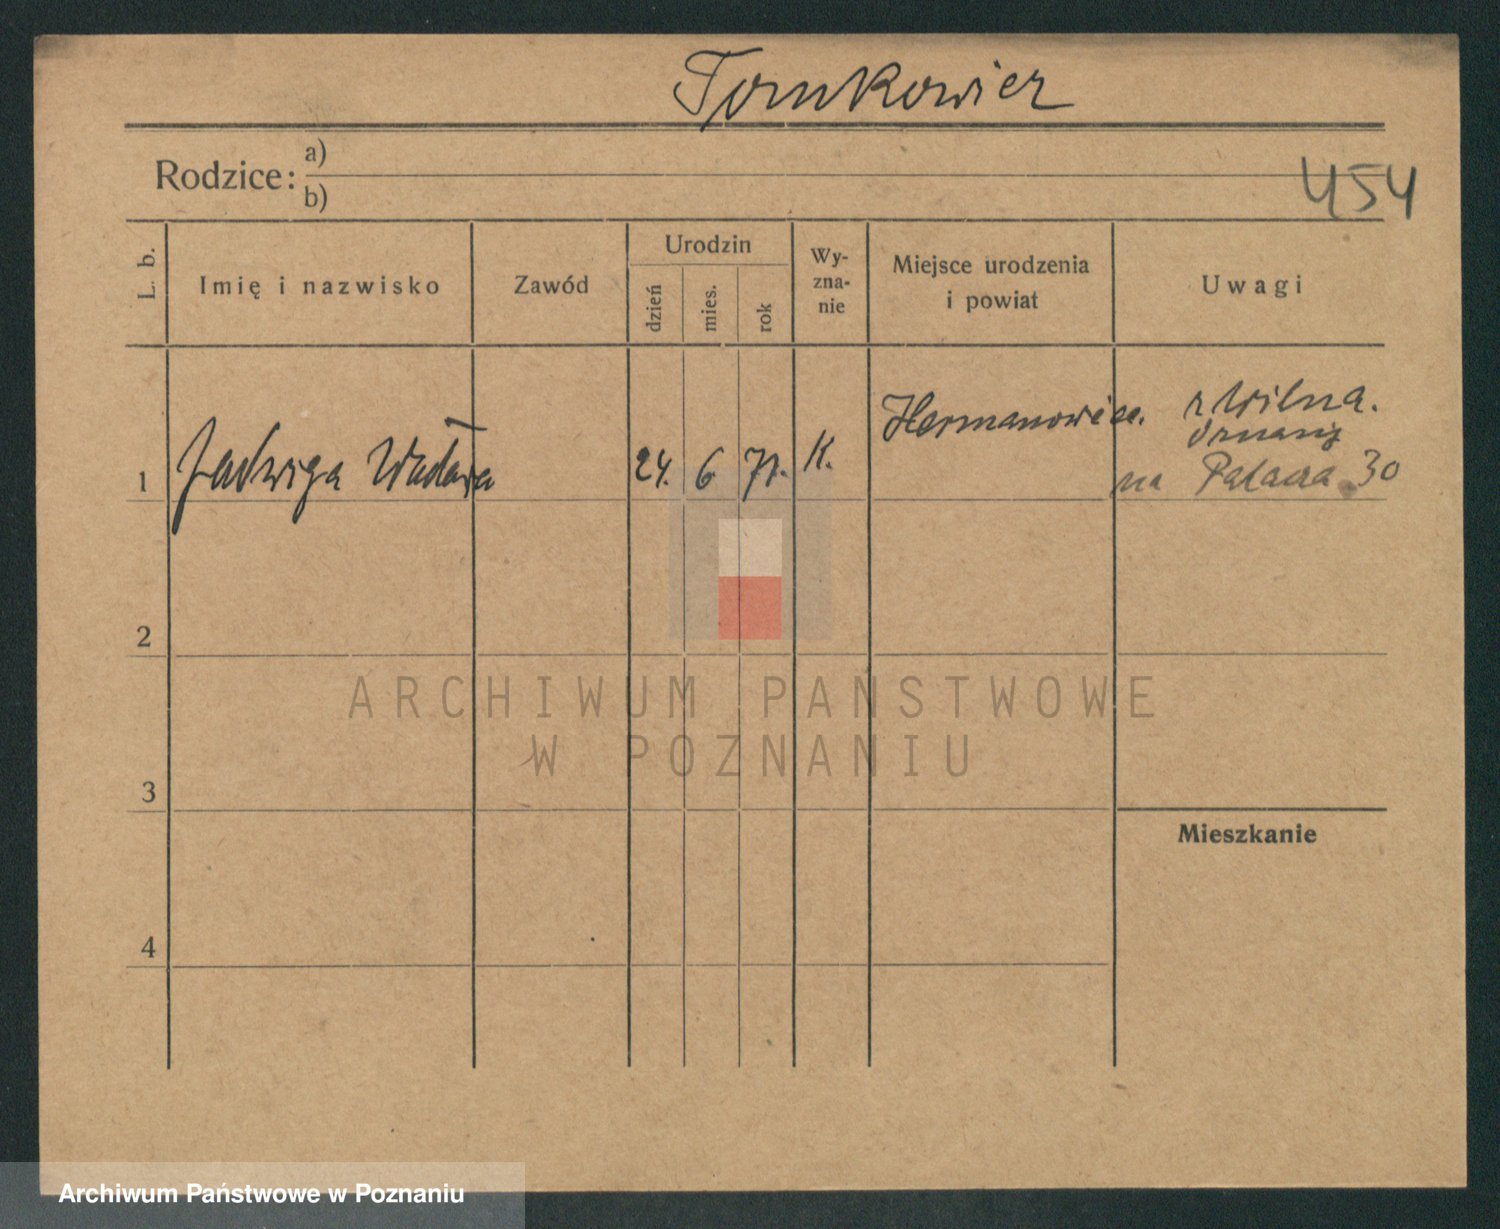 Tomkowicz
Rodzice: a)
b)
454
L. b.
Imię i nazwisko
Zawód
Urodzin
dzień
mies.
rok
Wy-
zna-
nie
Miejsce urodzenia
i powiat
Uwagi
1
Jadwiga Wdowa
24. 6 71. K.
Hermanowice.
z Wilna.
na Palacza 30
2
3
4
Mieszkanie
ARCHIWUM PAŃSTWOWE
W POZNANIU
Archiwum Państwowe w Poznaniu